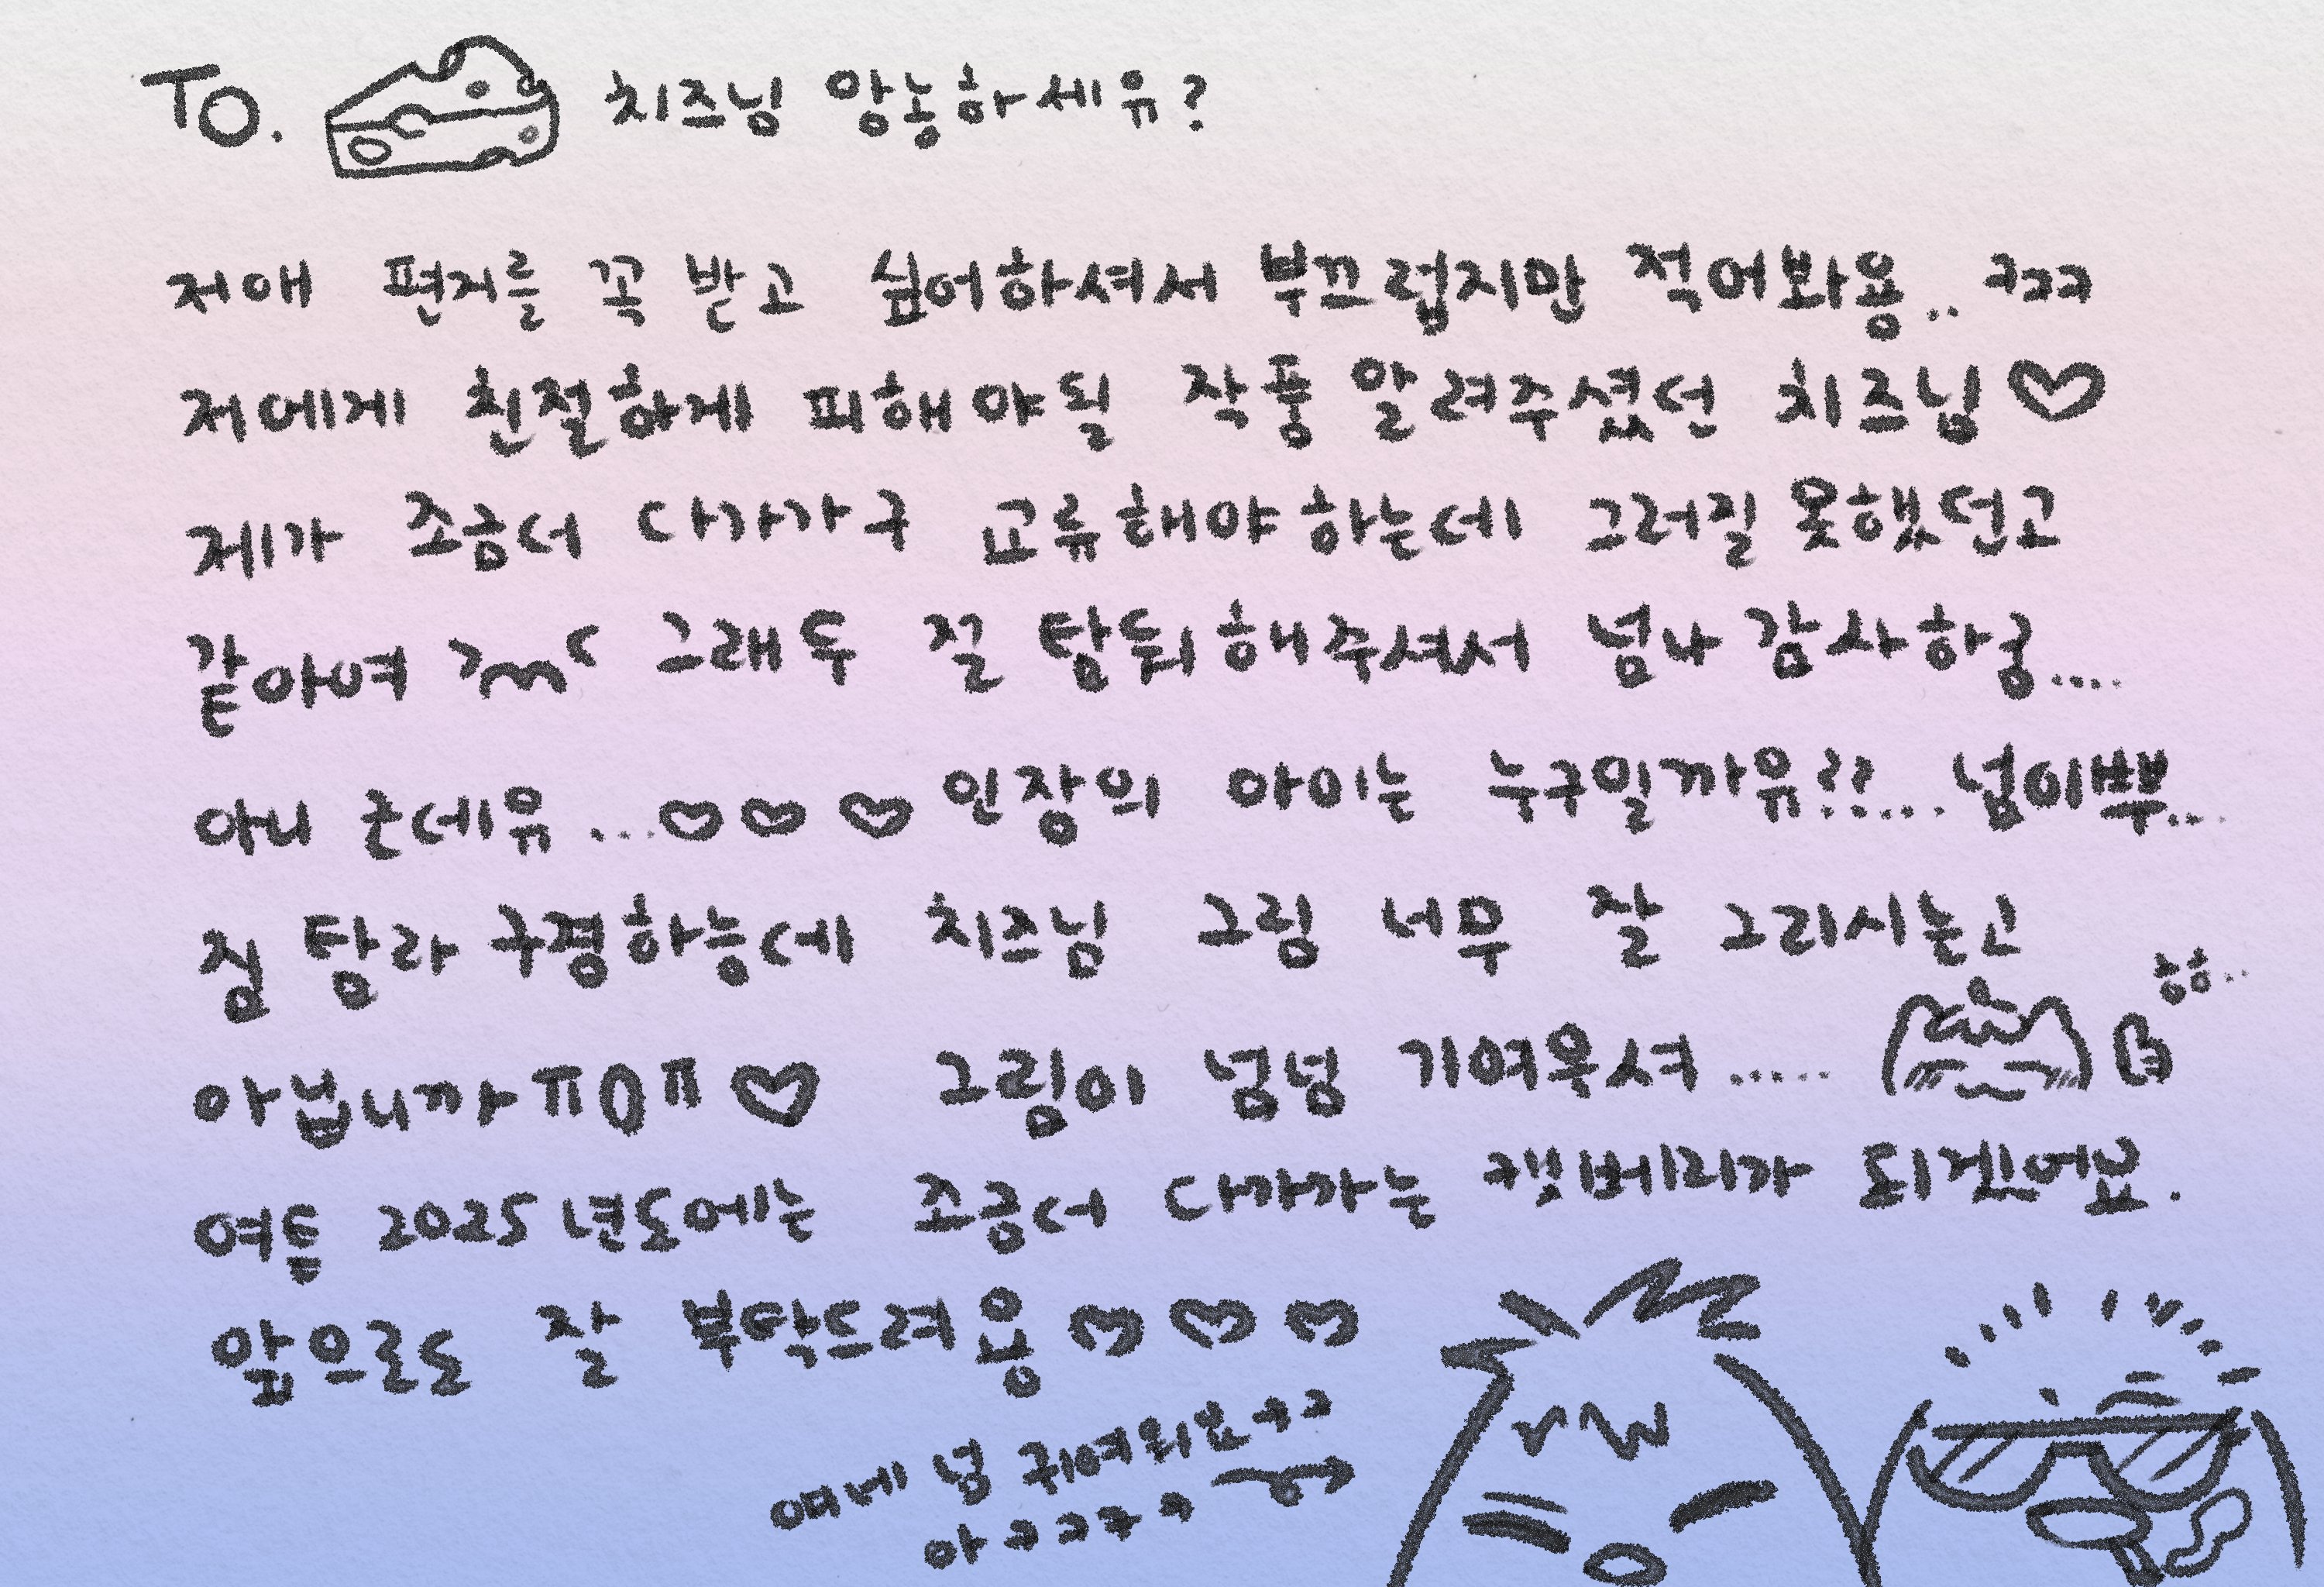 TO. 치즈님 앙농하세유?
저애 편지를 꼭 받고 싶어하셔서 부끄럽지만 적어봐용.. ㅋㅋㅋ
저에게 친절하게 피해야될 작품 알려주셨던 치즈님♡
제가 조금더 다가가구 교류해야하는데 그러질 못했던고
같아여 그래두 절 탐돼해주셔서 넘나 감사하궁....
아니 근데유 ...♡♡♡ 인장의 아이는 누구일까유??... 넘이쁘..
짐 탐라 구경하능데 치즈님 그림 너무 잘 그리시는고
흐흐..
아닙니까ㅠ0ㅠ♡ 그림이 넘넘 기여우셔.....
여튼 2025년도에는 조금더 다가가는 캣베리가 되겠어요.
앞으로도 잘 부탁드려용♡♡♡
얘네 넘 귀여워요ㅋㅋ
아ㅋㅋㅋㅋ